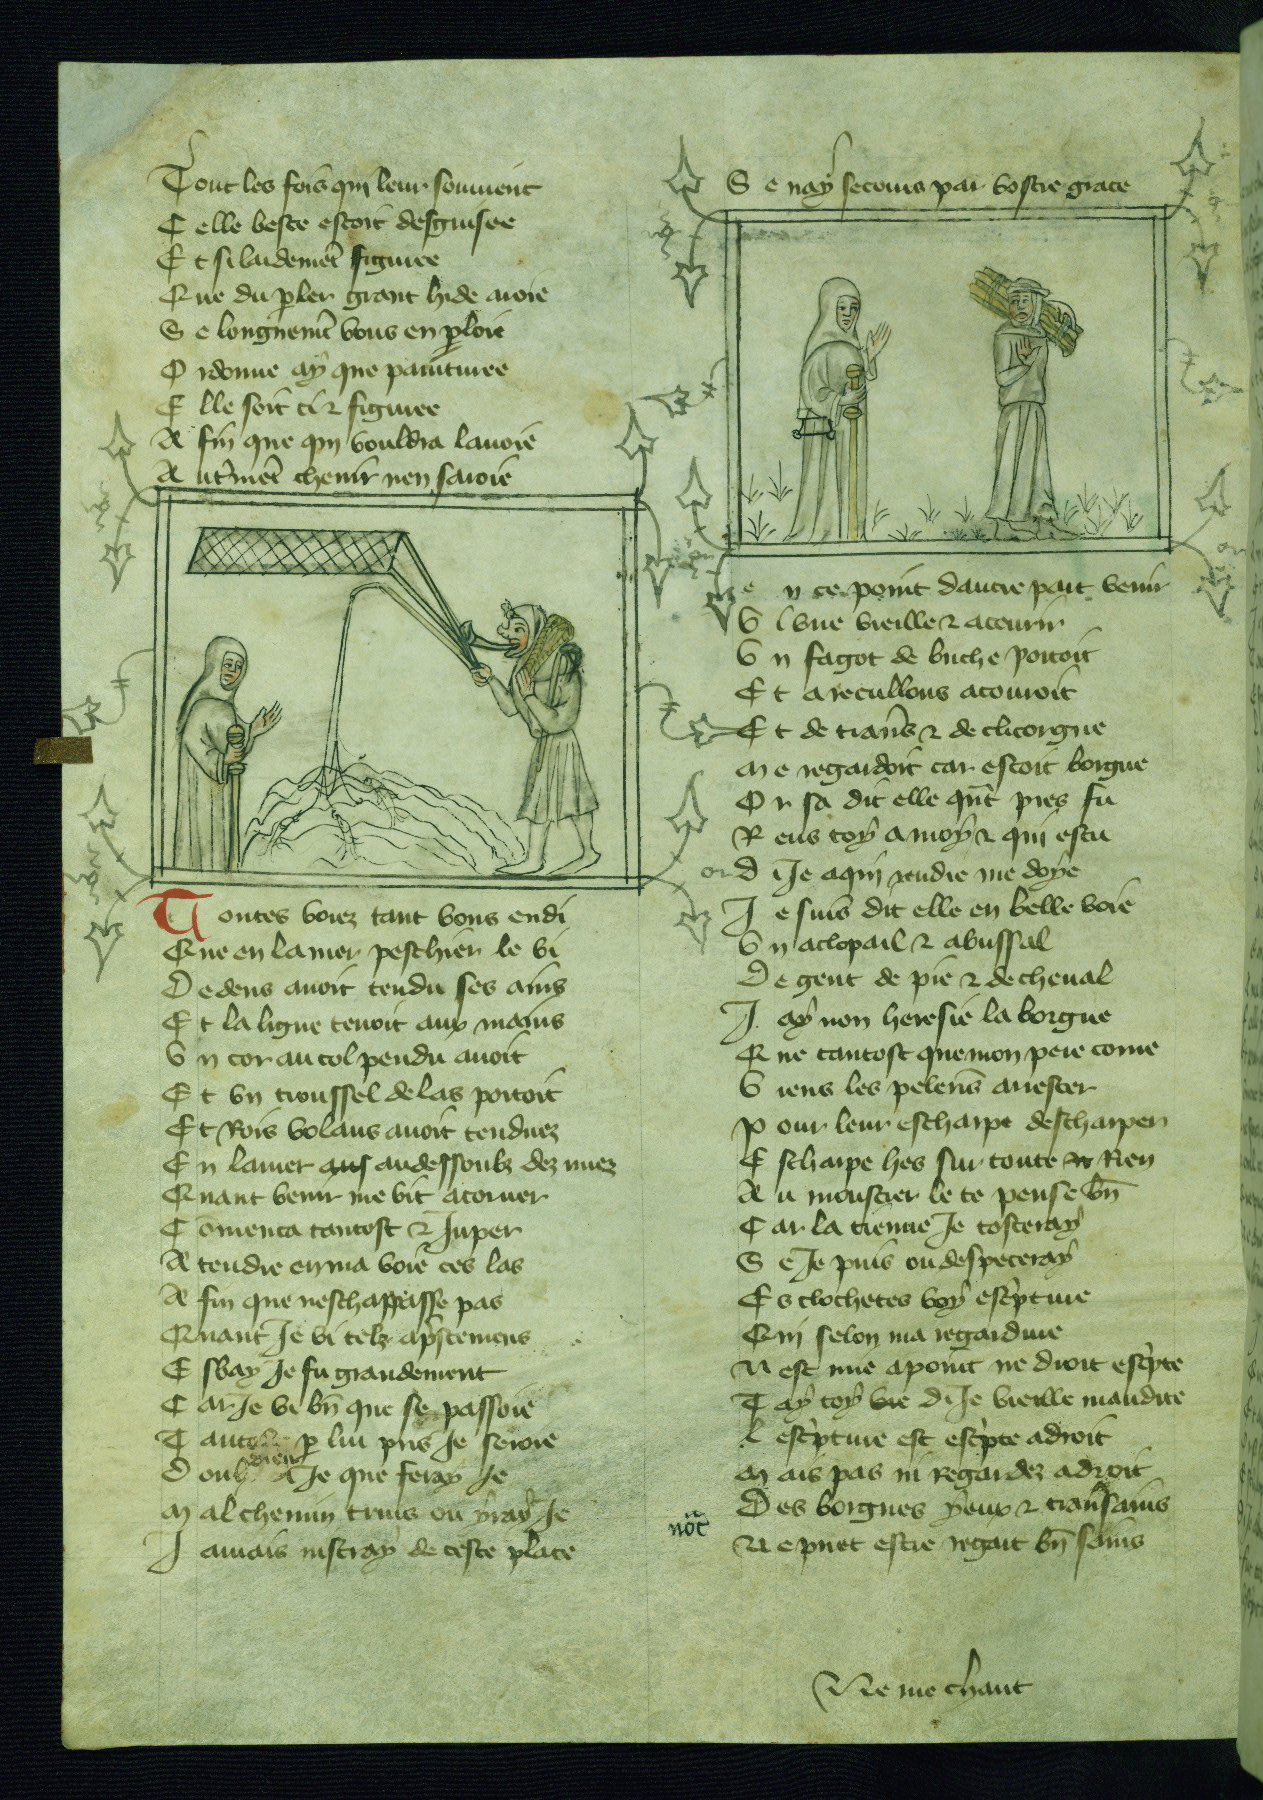 Tout les fois quil leur souuient
Celle beste estoit desguisee
Et si laidemēt figuree
Que du pler grant hide auoie
Se longuemēt vous en ploie
Ordonne ay que painturee
Elle soit ci & figuree
Afin que qui vouldra lauoie
Autremēt chenir nen sauoie
Toutes voiez tant vous en di
Que en la mer peschier le vi
Dedens auoit tendu ses ains
Et la ligne tenoit aux mains
Vn cor au col pendu auoit
Et vn troussel de las portoit
Et Rois volans auoit tenduez
En lamer audessoubz dez nuez
Quant venir me vit a corner
Cōmenca tantost & Juper
A tendre en ma voie ces las
Afin que neschappasse pas
Quant Je vi telz apstemens
Esbay Je fu grandement
Car Je vi bn̄ que se passoie
p lui pris Je seroie
dieu Je que feray Je
Mal chemin truis ou yray Je
Jamais nistray de ceste place
Se nay secours par vostre grace
en ce point dautre part venir
Vi vne vieille & acourir
Vn fagot de buche portoit
Et a recullons acouroit
Et de trauers & de clicorgne
Me regardoit car estoit borgne
Or sa dit elle qnt pres fu
Rens toy a moy & qui es tu
Di Je a qui rendre me doye
Je suis dit elle en belle voie
Vn aclopail & abussal
De gent de pie & de cheual
Jay non heresie la borgne
Que tantost que mon pere corne
Viens les pelerīs arrester
Pour leur escharpe descharper
Escharpe hes sur toute Rien
Au moustier le te pense bn̄
Car la tienne Je tosteray
Se Je puis ou despeceray
Es clochetes voy escpture
Qui selon ma regardure
Nest mie a point ne droit escpte
Tay toy vie di Je vieille maudite
Lescpture est escpte adroit
Mais pas ni regardez adroit
Des borgnes yeux & trauersains
Ne puet estre regart bn̄ sains
not
Ne me chaut